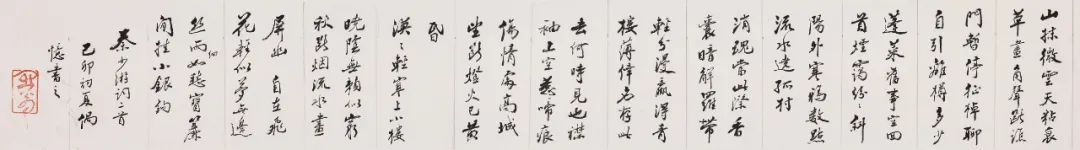 山抹微雲天粘衰
草畫角聲斷譙
門暫停征棹聊
自引離樽多少
蓬萊舊事空回
首煙靄紛〻斜
陽外寒鴉數點
流水遶孤村
消魂當此際香
囊暗解羅帶
輕分漫贏得青
樓薄倖名存此
去何時見也襟
袖上空惹啼痕
傷情處高城
望斷燈火已黃
昏
漠〻輕寒上小樓
曉陰無賴似窮
秋淡烟流水畫
屏幽 自在飛
花輕似夢無邊
丝雨细如愁寶簾
閒挂小銀鈎
秦少游詞二首
己卯初夏偶
憶書之